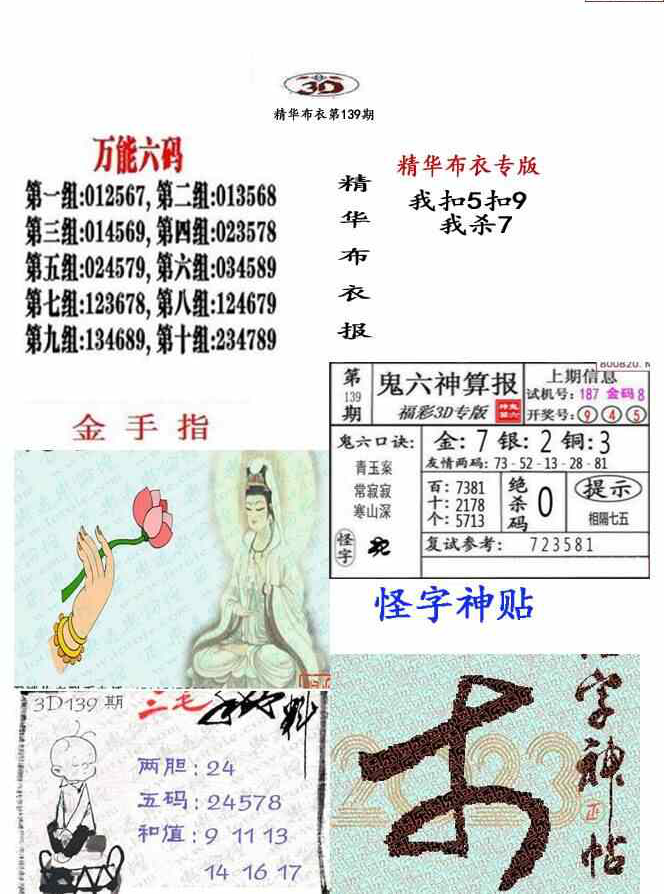 3D
精华布衣第139期
万能六码
第一组:012567, 第二组:013568
第三组:014569, 第四组:023578
第五组:024579, 第六组:034589
第七组:123678, 第八组:124679
第九组:134689, 第十组:234789
精华布衣报
精华布衣专版
我扣5扣9
我杀7
第139期
鬼六神算报
福彩3D专版
上期信息
试机号: 187 金码 8
开奖号: 9 4 5
鬼六口诀:
青玉案
常寂寂
寒山深
怪字
金: 7 银: 2 铜: 3
友情两码: 73-52-13-28-81
百: 7381
十: 2178
个: 5713
绝杀码 0
提示
相隔七五
复试参考: 723581
金手指
怪字神贴
3D139期
三毛
料
两胆: 24
五码: 24578
和值: 9 11 13
14 16 17
2023
字神帖
正